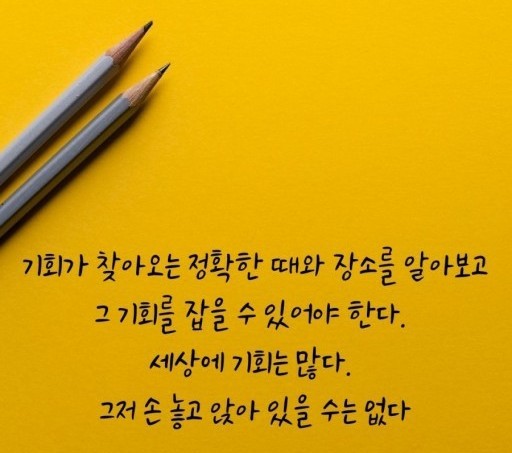 기회가 찾아오는 정확한 때와 장소를 알아보고
그 기회를 잡을 수 있어야 한다.
세상에 기회는 많다.
그저 손 놓고 앉아 있을 수는 없다